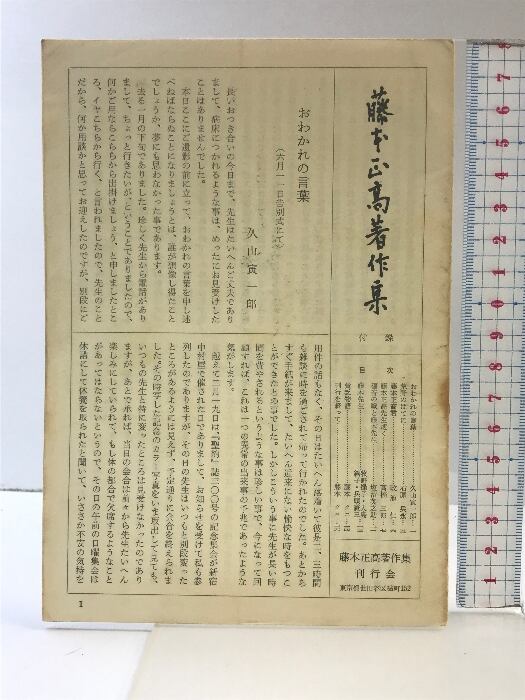 藤本正高著作集
付録
目次
おわかれの言葉
久山寅一郎
藤本正高著作集
刊行会
東京都世田谷区
おわかれの言葉
(六月一一日告別式にて)
久山寅一郎
長いおつき合いの今日まで、先生はたいへんご丈夫であり
まして、病床につかれるような事は、めったにお見受けした
ことはありませんでした。
本日ここにご遺影の前に立って、おわかれの言葉を申し述
べねばならぬことになりましょうとは、誰が想像し得たこと
でしょうか、夢にも思わなかった事であります。
去る一月の下旬でありました。珍しく先生から電話があり
まして、ちょっと行きたいが、ということでありましたので、
何かご用ならこちらから出掛けましょう、と申しましたとこ
ろ、イヤこちらから行く、と言われましたので、先生のこと
だから、何か用談かと思ってお迎えしたのですが、別段にご
用件の話もなく、その日はたいへん落着いて彼是二、三時間
も雑談に時を過ごされて帰って行かれたのでした。あとから
すぐ手紙が来まして、たいへん近来にない愉快な時をもつこ
とができたとの事でした。しかしこういう事に先生が長い時
間を費やされるというような事は珍しい事で、今になって回
顧すれば、これは一つの異常の出来事の予兆であったような
気がします。
越えて二月一九日は、『聖約』誌三〇〇号の記念集会が新宿
中村屋で催された日でありまして、お知らせを受けて私も参
列したのでありますが、その日の先生はいつもと別段変った
ところがあるようには見えず、予定通りに会合を終えられま
した。その時写した記念のカラー写真をいま取出して見ても、
いつもの先生と特に変ったところは見受けなかったのであり
ますが、あとで承れば、当日の会合は前々から先生たいへん
楽しみにしていられて、もし体の都合で欠席するようなこと
があってはならないというので、その日の午前の日曜集会は
休講にして休養を取られたと聞いて、いささか不安の気持を
1